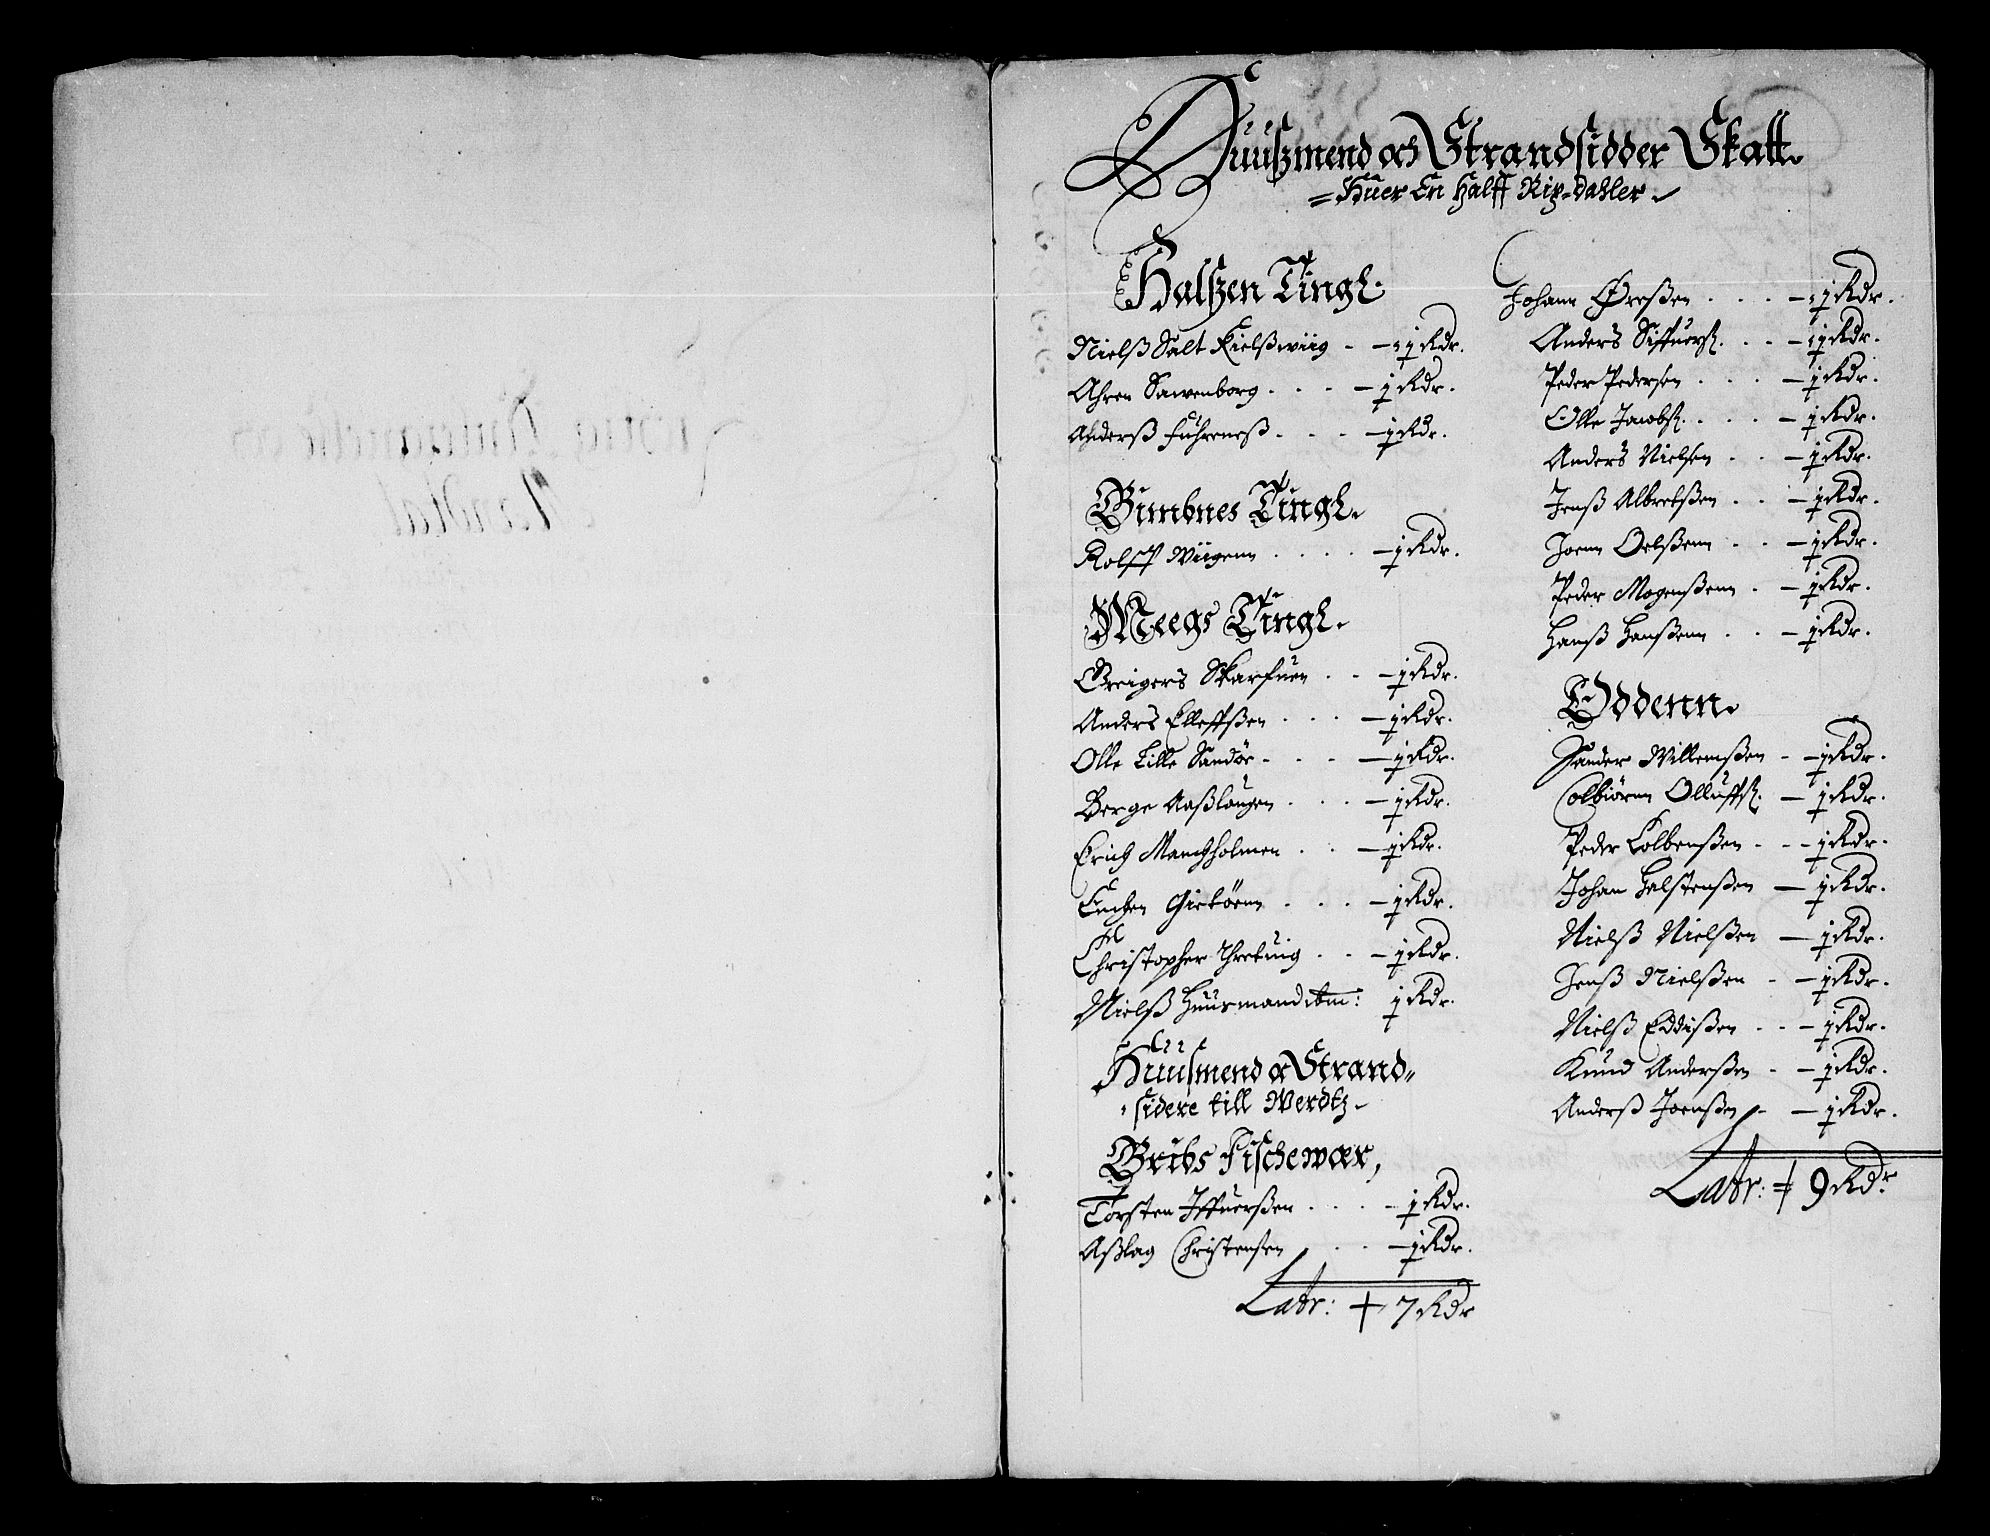 Huuszmend och Strandsidder Skatt.
Huer En Halff Rix-daller
Halszen Tingl.
Nielß Salt Kielßwiig - - ½ Rdr.
Ahren Sawenborg . . . - ½ Rdr.
Anderß Fuhreneß . . . - ½ Rdr.
Bimbnes Tingl.
Rolff Wiigenn . . . . - ½ Rdr.
Meegs Tingl.
Greigers Skarfuen . . - ½ Rdr.
Anders Elleffßen . . . - ½ Rdr.
Olle Lille Sandøe . . . - ½ Rdr.
Berge Aaßlaugen . . . - ½ Rdr.
Erich Manchholmen . . - ½ Rdr.
Enchen Giekøenn . . . - ½ Rdr.
Christopher . . - ½ Rdr.
Nielß Huusmand ibm: ½ Rdr.
Huusmend oc Strand-
sidere till Werdtz
Gribs Fischewær,
Torsten Iffuerßen . . . - ½ Rdr.
Aßlag Christensen . . - ½ Rdr.
Latr: + 7 Rdr
Johann Øreßen . . . - ½ Rdr.
Anders Siffuerß. . . - ½ Rdr.
Peder Pedersen . . . - ½ Rdr.
Olle Jacobß. . . . - ½ Rdr.
Anders Nielsen . . - ½ Rdr.
Jenß Albretßen . . - ½ Rdr.
Joenn Oelßenn . . - ½ Rdr.
Peder Mogenßenn . - ½ Rdr.
Hanß Hanßenn . . - ½ Rdr.
Oddenn.
Sander Willemßen - - ½ Rdr.
Colbiørnn Olluffß. - ½ Rdr.
Peder Colbenßen - - - ½ Rdr.
Johan Halstenßen - ½ Rdr.
Nielß Nielßen - ½ Rdr.
Jenß Nielßen - - ½ Rdr.
Nielß Eddißen - - - ½ Rdr.
Knud Anderßen - - ½ Rdr.
Anderß Joenßen - - ½ Rdr.
Latr: + 9 Rdr